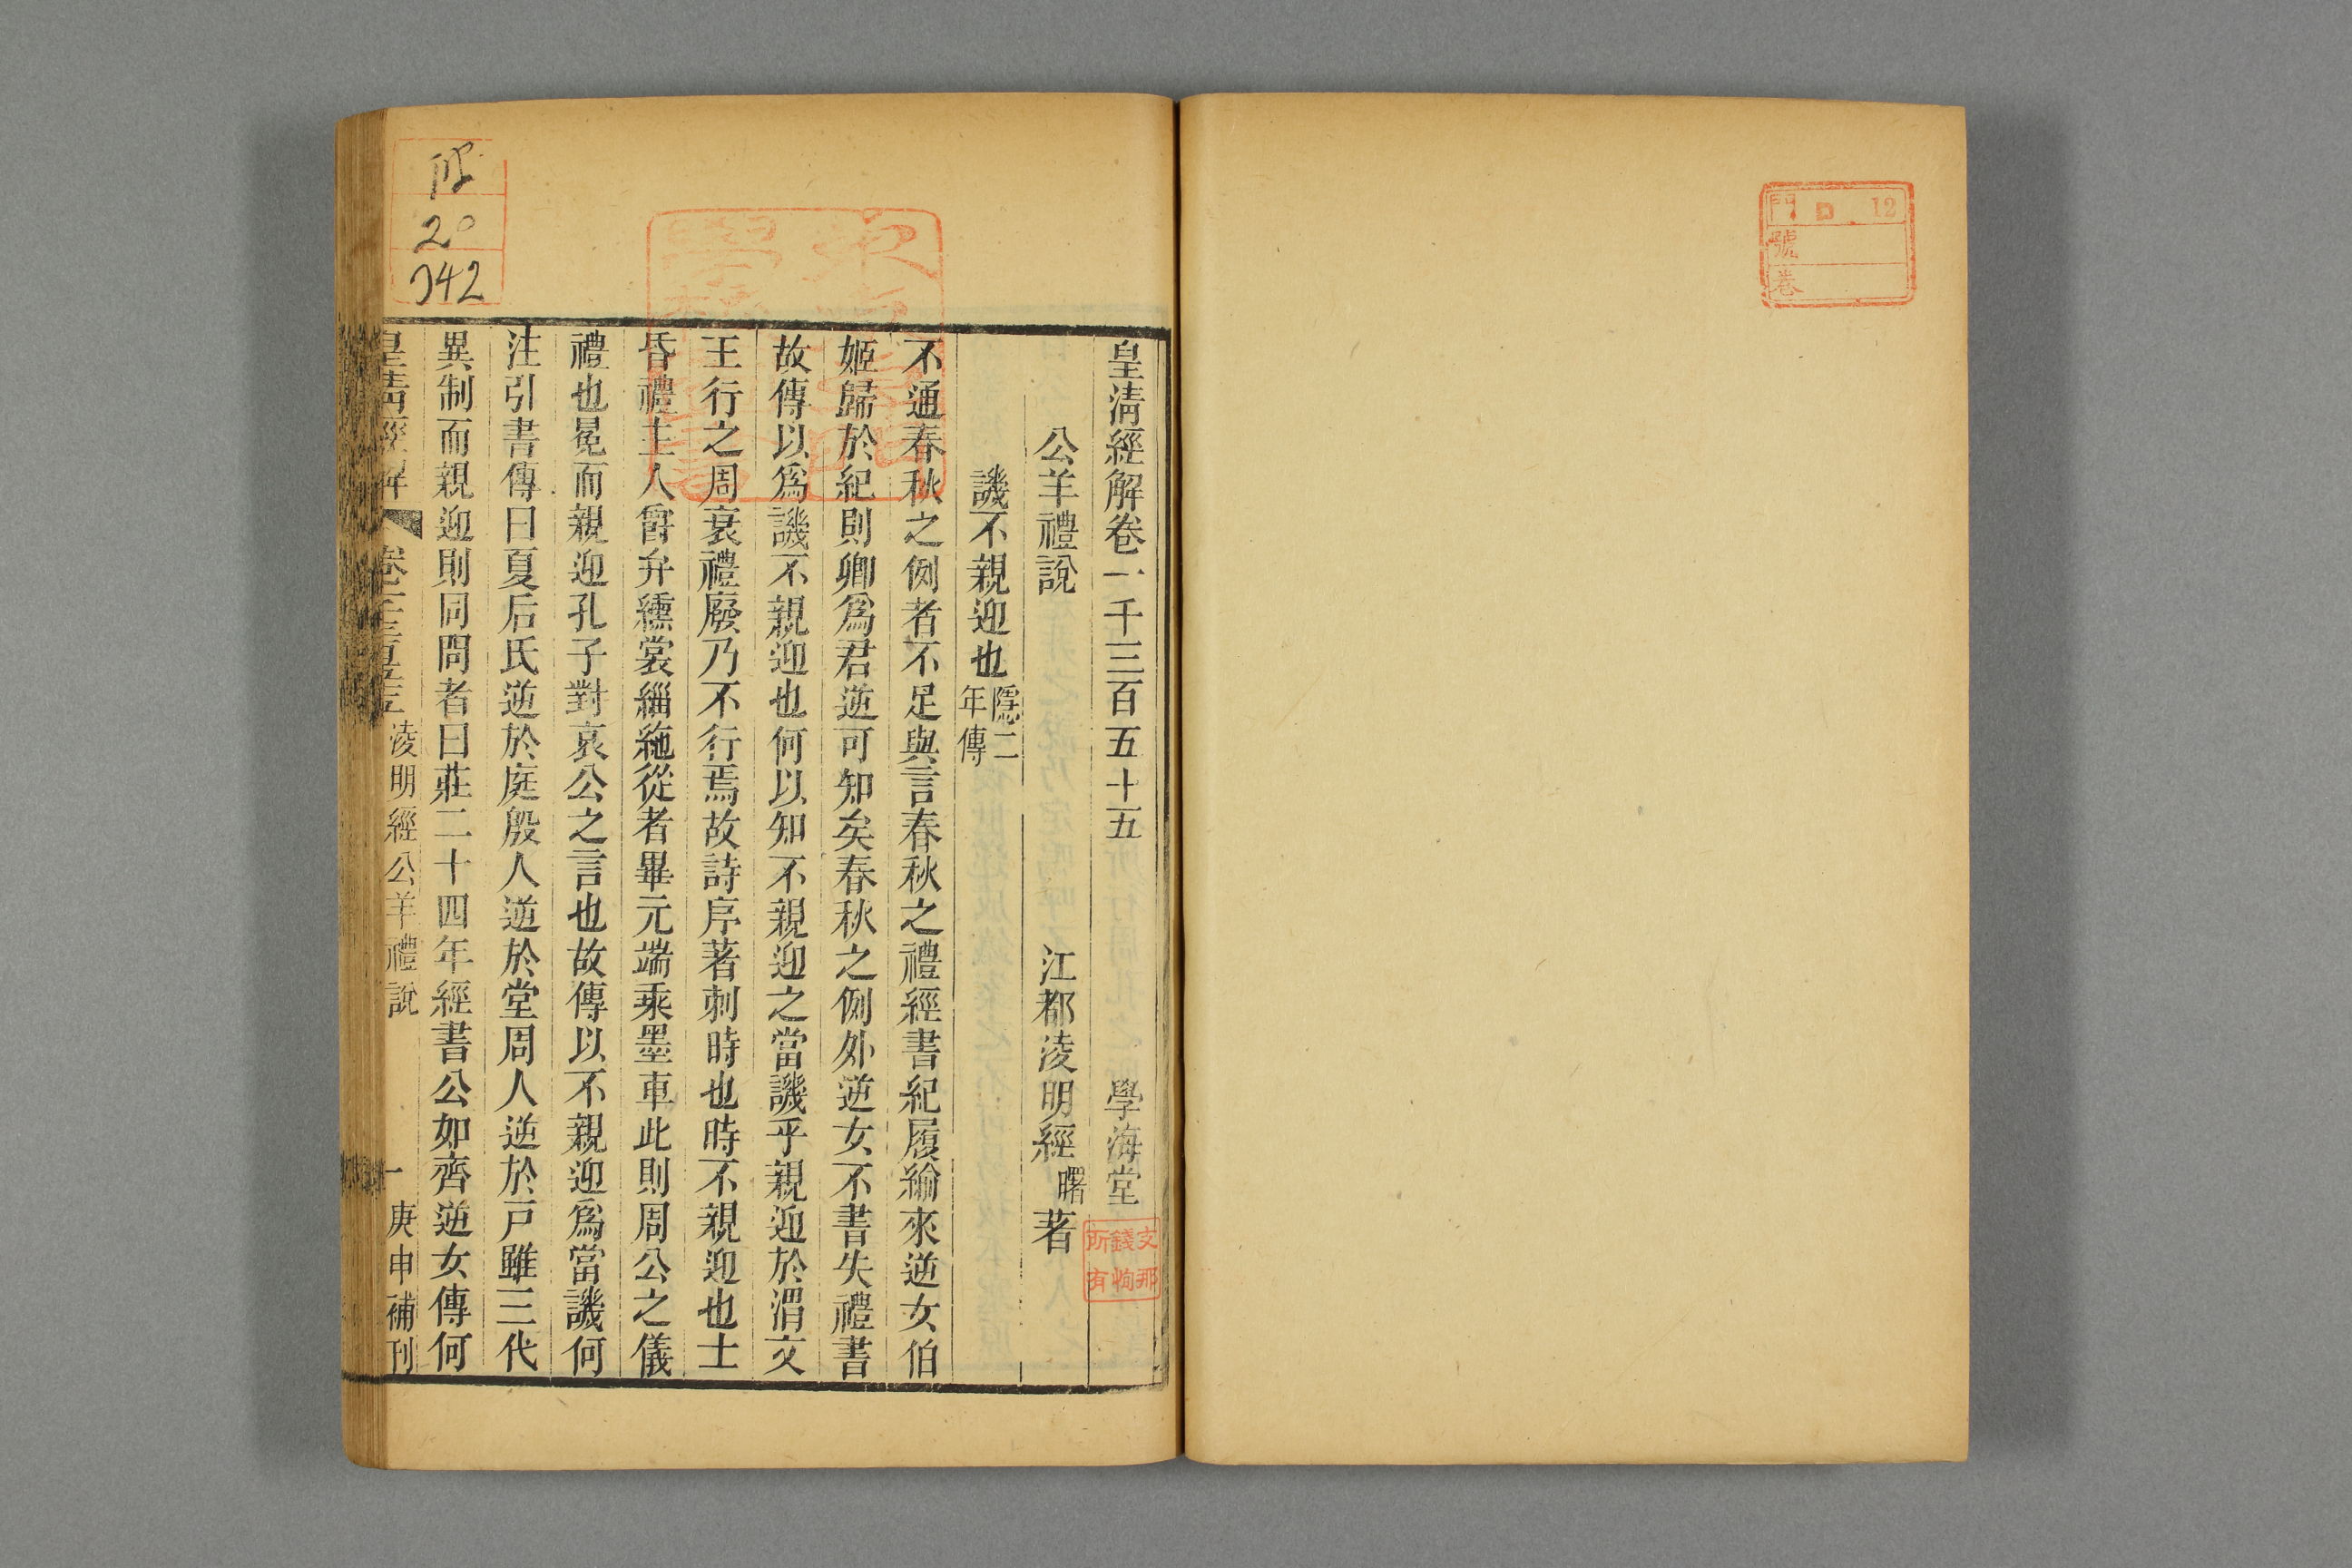 門 D 12
號
卷
皇清經解卷一千三百五十五 學海堂
公羊禮說 江都淩明經曙著
譏不親迎也隱二年傳
不通春秋之例者不足與言春秋之禮經書紀履緰來逆女伯
姬歸於紀則卿爲君逆可知矣春秋之例外逆女不書失禮書
故傳以爲譏不親迎也何以知不親迎之當譏乎親迎於渭文
王行之周衰禮廢乃不行焉故詩序著刺時也時不親迎也士
昏禮主人爵弁纁裳緇袘從者畢元端乘墨車此則周公之儀
禮也冕而親迎孔子對哀公之言也故傳以不親迎爲當譏何
注引書傳曰夏后氏逆於庭殷人逆於堂周人逆於戸雖三代
異制而親迎則同問者曰莊二十四年經書公如齊逆女傳何
皇清經解 卷一千三百五十五 淩明經公羊禮說 一 庚申補刊
支那
錢恂
所有
20
042